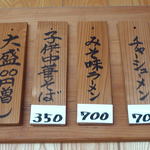 チャーシューメン
70
みそ味ラーメン
700
子供中華そば
350
大盛100円増し